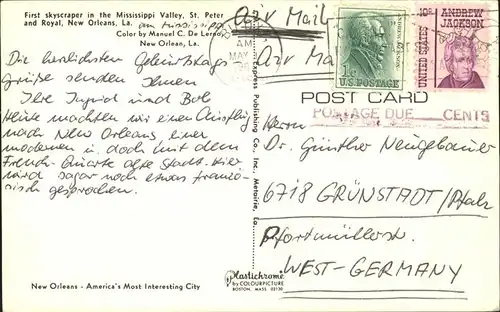 First skyscraper in the Mississippi Valley, St. Peter
and Royal, New Orleans, La. am Mississippi
Color by Manuel C. De Lerno,
New Orlean, La.
Die herzlichsten Geburtstags
Grüße senden Ihnen
Ihre Ingrid und Bob
Heute machten wir einen Ausflug
nach New Orleans einer
modernen u. doch mit dem
French-Quarte alte Stadt. Hier
wird sogar noch etwas französisch
gesprochen.
New Orleans - America's Most Interesting City
Express Publishing Co., Inc., Metairie, La.
Plastichrome
by COLOURPICTURE
BOSTON, MASS. 02130
Air Mail
Air Mail
AM
MAY
1c
U.S. POSTAGE
10c
ANDREW
JACKSON
UNITED STATES
POST CARD
POSTAGE DUE CENTS
Herrn
Dr. Günther Neugebauer
6718 GRÜNSTADT/Pfalz
Pfortmüllerstr.
WEST-GERMANY